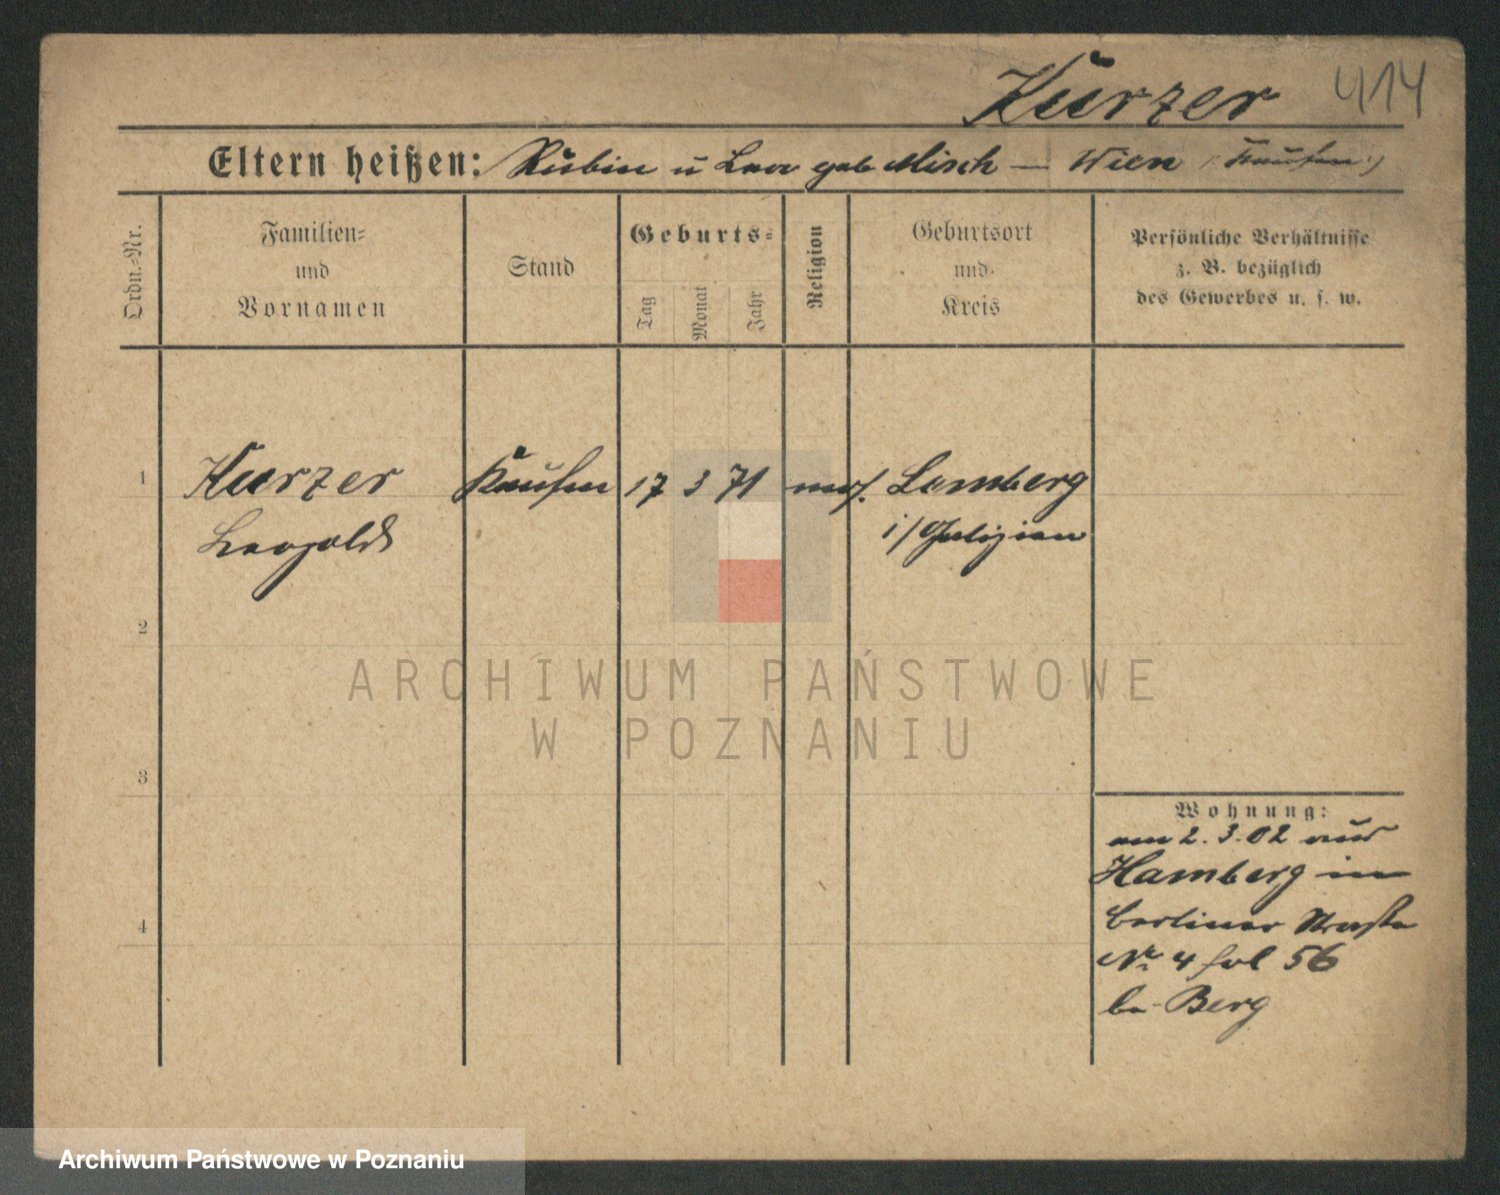 Kurzer 414
Eltern heißen: Rubin u Lea geb Misch — Wien (: Kaufm :)
Ordn.-Nr.
Familien-
und
Vornamen
Stand
Geburts-
Tag
Monat
Jahr
Religion
Geburtsort
und
Kreis
Persönliche Verhältnisse
z. B. bezüglich
des Gewerbes u. s. w.
1 Kurzer Kaufm 17 3 71 mos. Lemberg
Leopold i/Galizien
2
3
4
Wohnung:
am 2.3.02 aus
Hamberg in
Berliner Straße
No 4 fol 56
b. Berg
ARCHIWUM PAŃSTWOWE
W POZNANIU
Archiwum Państwowe w Poznaniu